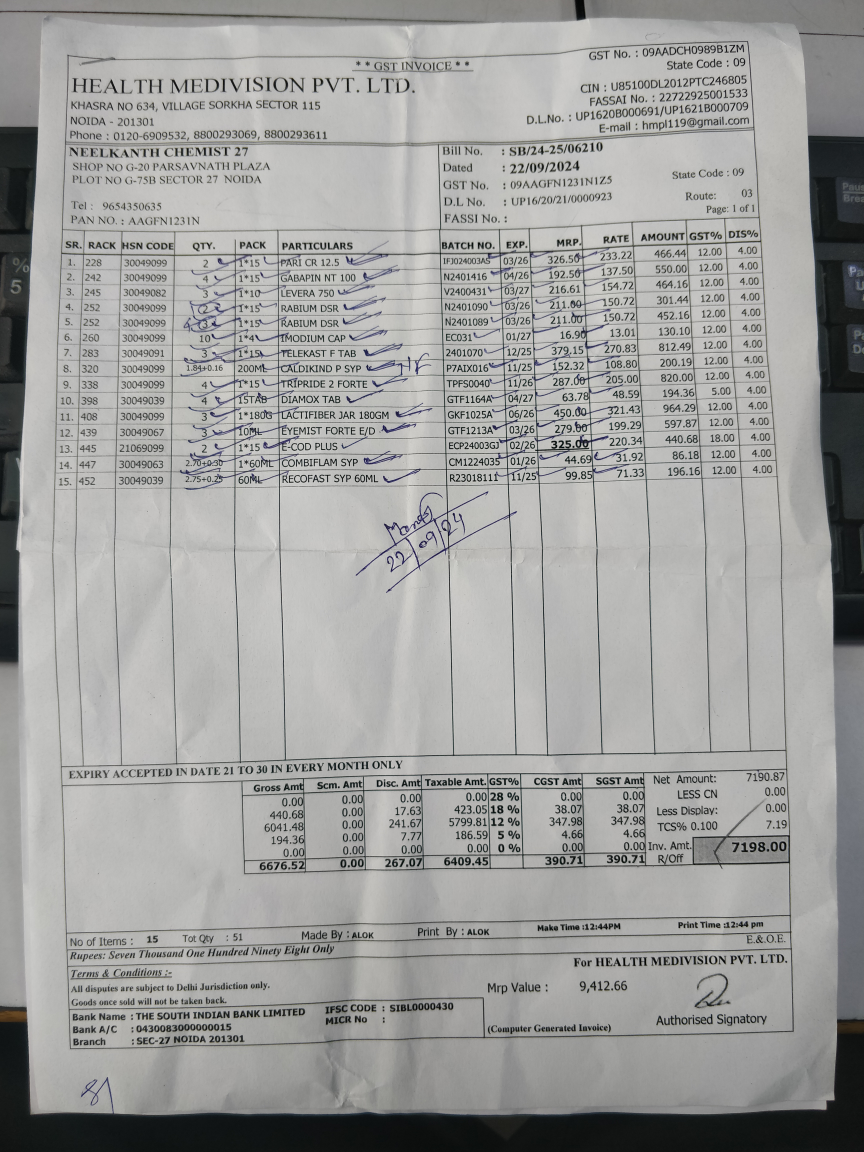 * * GST INVOICE * *
GST No. : 09AADCH0989B1ZM
State Code : 09
HEALTH MEDIVISION PVT. LTD.
CIN : U85100DL2012PTC246805
KHASRA NO 634, VILLAGE SORKHA SECTOR 115
FASSAI No. : 22722925001533
NOIDA - 201301
D.L.No. : UP1620B000691/UP1621B000709
Phone : 0120-6909532, 8800293069, 8800293611
E-mail : hmpl119@gmail.com
NEELKANTH CHEMIST 27
SHOP NO G-20 PARSAVNATH PLAZA
PLOT NO G-75B SECTOR 27 NOIDA
Tel : 9654350635
PAN NO. : AAGFN1231N
Bill No. : SB/24-25/06210
Dated : 22/09/2024
GST No. : 09AAGFN1231N1Z5 State Code : 09
D.L No. : UP16/20/21/0000923 Route: 03
FASSI No. : Page: 1 of 1
SR. RACK HSN CODE QTY. PACK PARTICULARS BATCH NO. EXP. MRP. RATE AMOUNT GST% DIS%
1. 228 30049099 2 1*15 PARI CR 12.5 IFJ024003AS 03/26 326.50 233.22 466.44 12.00 4.00
2. 242 30049099 4 1*15 GABAPIN NT 100 N2401416 04/26 192.50 137.50 550.00 12.00 4.00
3. 245 30049082 3 1*10 LEVERA 750 V2400431 03/27 216.61 154.72 464.16 12.00 4.00
4. 252 30049099 2 1*15 RABIUM DSR N2401090 03/26 211.00 150.72 301.44 12.00 4.00
5. 252 30049099 3 1*15 RABIUM DSR N2401089 03/26 211.00 150.72 452.16 12.00 4.00
6. 260 30049099 10 1*4 IMODIUM CAP EC031 01/27 16.90 13.01 130.10 12.00 4.00
7. 283 30049091 3 1*15 TELEKAST F TAB 2401070 12/25 379.15 270.83 812.49 12.00 4.00
8. 320 30049099 1.84+0.16 200ML CALDIKIND P SYP P7AIX016 11/25 152.32 108.80 200.19 12.00 4.00
9. 338 30049099 4 1*15 TRIPRIDE 2 FORTE TPFS0040 11/26 287.00 205.00 820.00 12.00 4.00
10. 398 30049039 4 15TAB DIAMOX TAB GTF1164A 04/27 63.78 48.59 194.36 5.00 4.00
11. 408 30049099 3 1*180G LACTIFIBER JAR 180GM GKF1025A 06/26 450.00 321.43 964.29 12.00 4.00
12. 439 30049067 3 10ML EYEMIST FORTE E/D GTF1213A 03/26 279.00 199.29 597.87 12.00 4.00
13. 445 21069099 2 1*15 E-COD PLUS ECP24003GJ 02/26 325.00 220.34 440.68 18.00 4.00
14. 447 30049063 2.70+0.30 1*60ML COMBIFLAM SYP CM1224035 01/26 44.69 31.92 86.18 12.00 4.00
15. 452 30049039 2.75+0.25 60ML RECOFAST SYP 60ML R23018111 11/25 99.85 71.33 196.16 12.00 4.00
22/09/24
EXPIRY ACCEPTED IN DATE 21 TO 30 IN EVERY MONTH ONLY
Gross Amt Scm. Amt Disc. Amt Taxable Amt. GST% CGST Amt SGST Amt Net Amount: 7190.87
0.00 0.00 0.00 0.00 28 % 0.00 0.00 LESS CN 0.00
440.68 0.00 17.63 423.05 18 % 38.07 38.07 Less Display: 0.00
6041.48 0.00 241.67 5799.81 12 % 347.98 347.98 TCS% 0.100 7.19
194.36 0.00 7.77 186.59 5 % 4.66 4.66
0.00 0.00 0.00 0.00 0 % 0.00 0.00 Inv. Amt. 7198.00
6676.52 0.00 267.07 6409.45 390.71 390.71 R/Off
No of Items : 15 Tot Qty : 51 Made By : ALOK Print By : ALOK Make Time :12:44PM Print Time :12:44 pm
Rupees: Seven Thousand One Hundred Ninety Eight Only E.&.O.E.
Terms & Conditions :-
For HEALTH MEDIVISION PVT. LTD.
All disputes are subject to Delhi Jurisdiction only.
Mrp Value : 9,412.66
Goods once sold will not be taken back.
Bank Name : THE SOUTH INDIAN BANK LIMITED IFSC CODE : SIBL0000430
Bank A/C : 0430083000000015 MICR No :
Branch : SEC-27 NOIDA 201301
(Computer Generated Invoice) Authorised Signatory